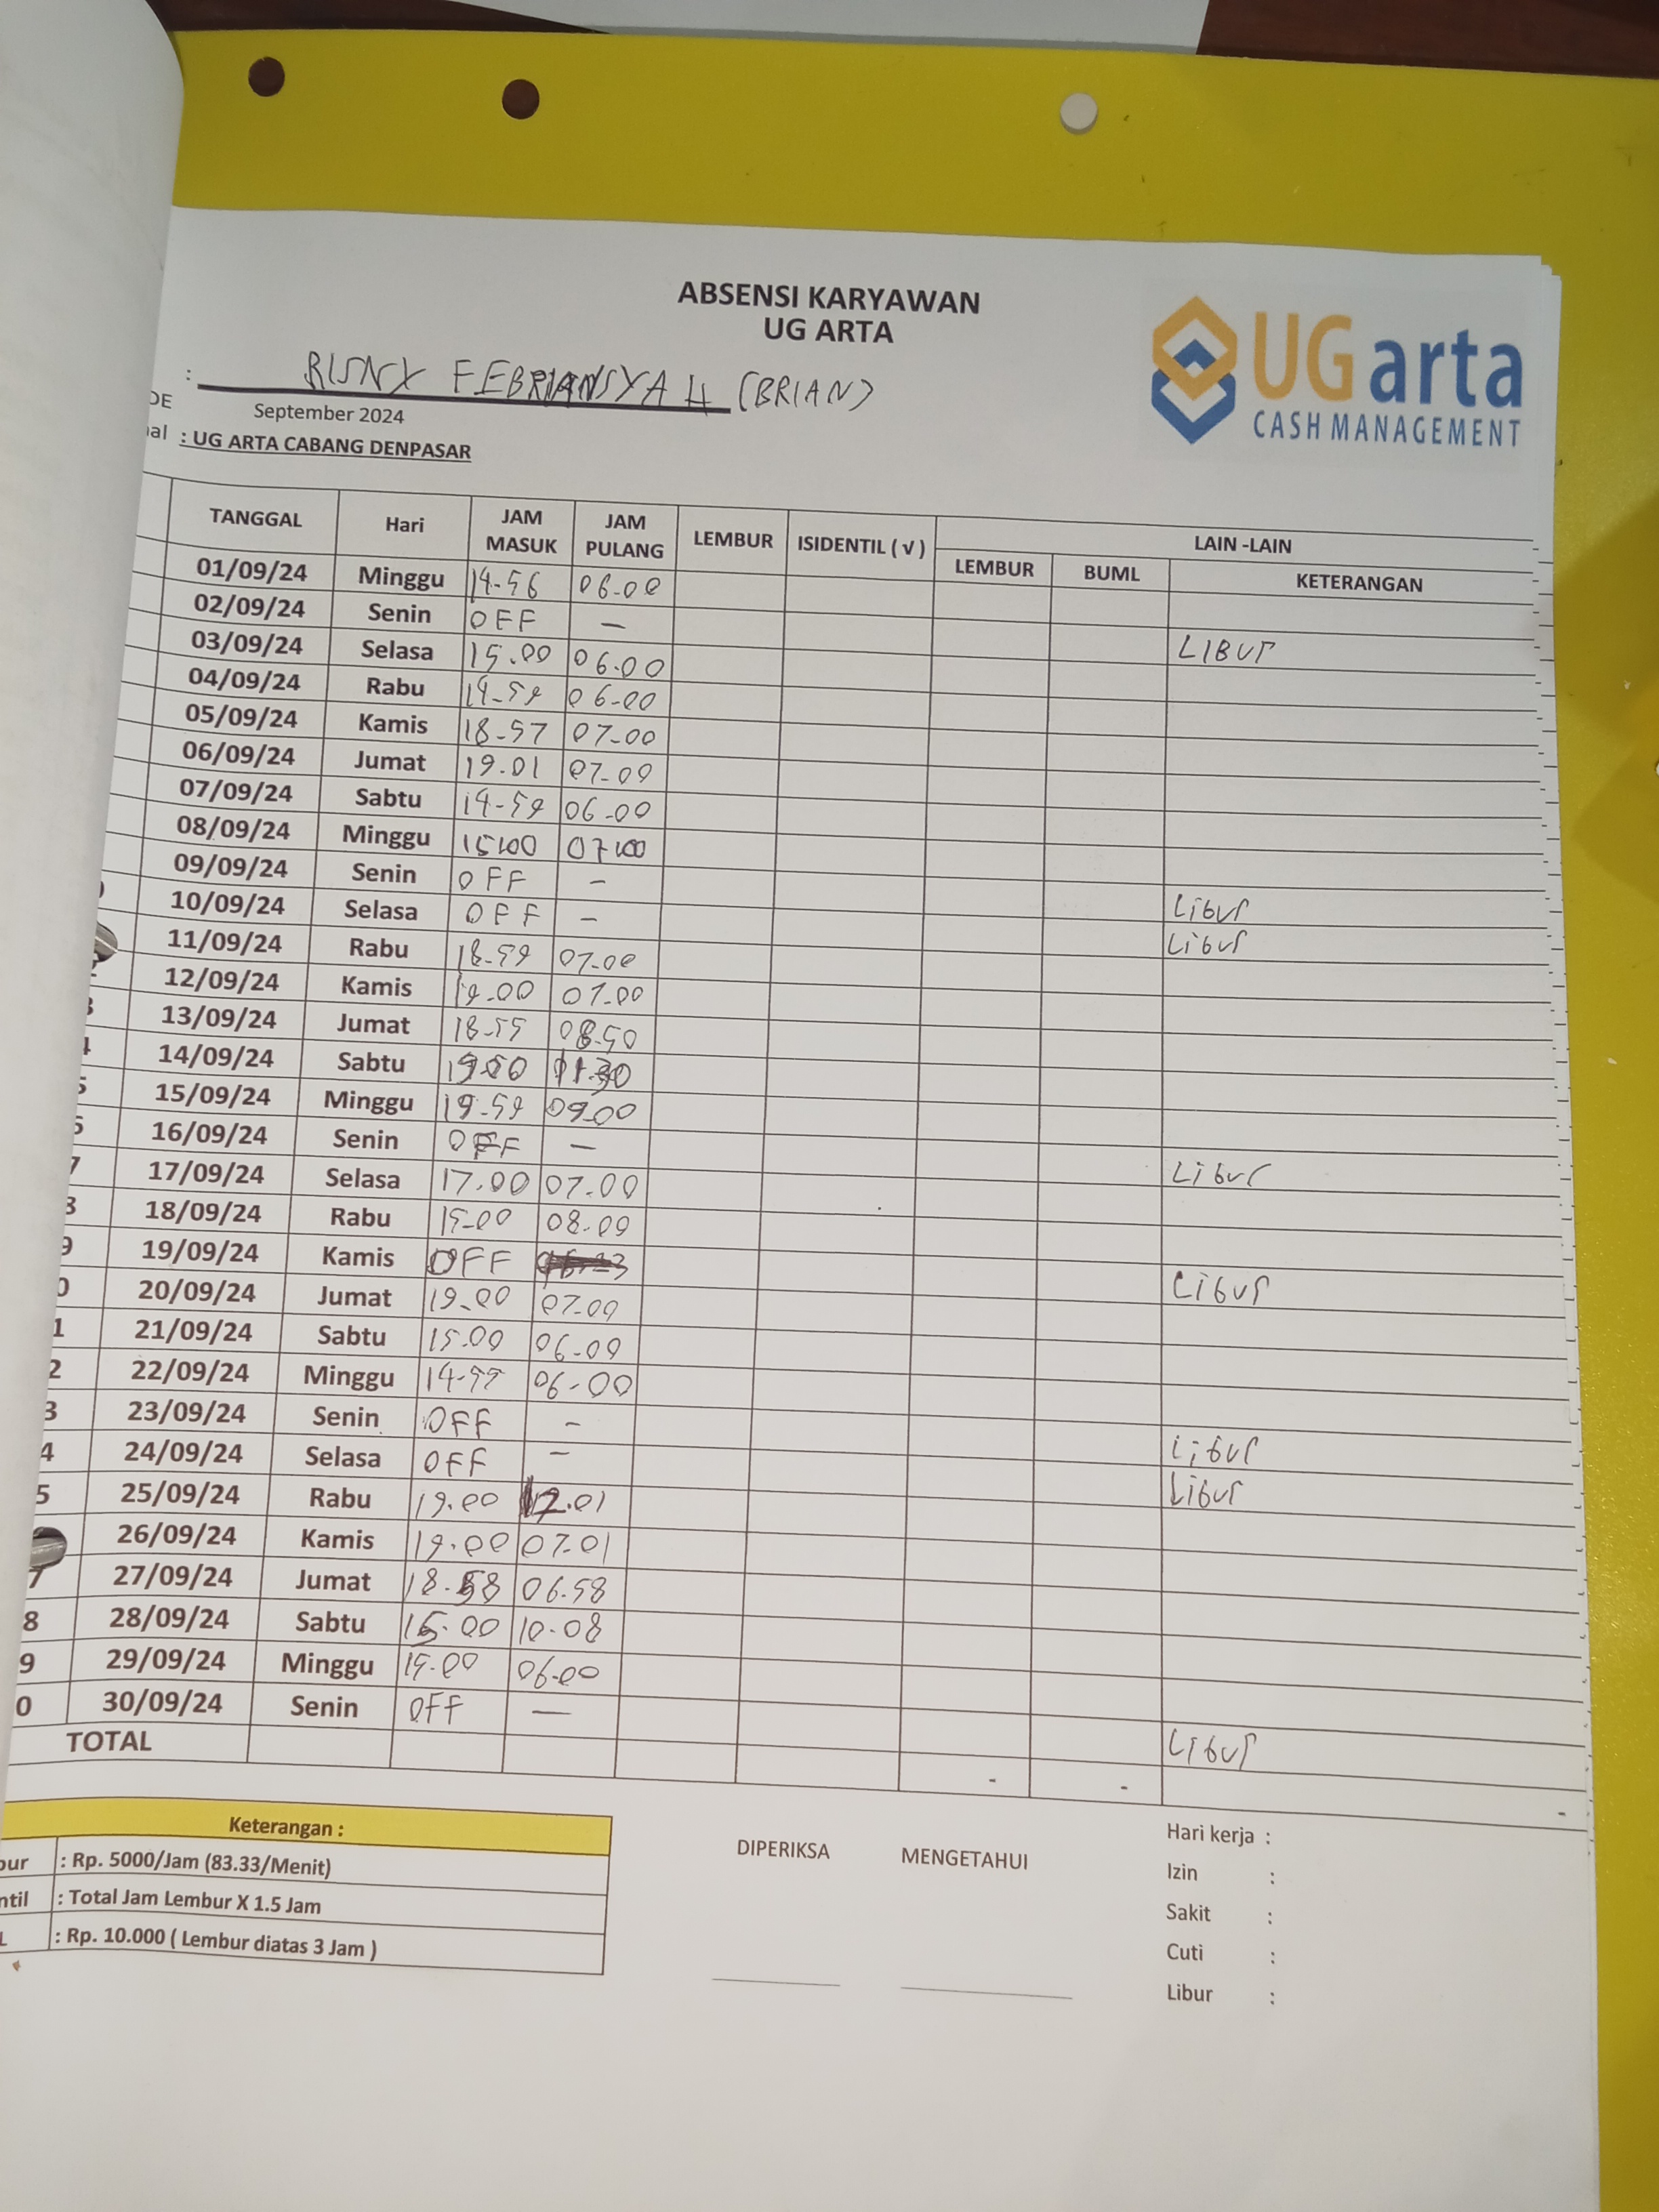 ABSENSI KARYAWAN
UG ARTA
UG arta
CASH MANAGEMENT
: FEBRIANSYAH (BRIAN)
DE September 2024
: UG ARTA CABANG DENPASAR
TANGGAL Hari JAM MASUK JAM PULANG LEMBUR ISIDENTIL ( √ ) LAIN -LAIN
LEMBUR BUML KETERANGAN
01/09/24 Minggu 14-56 06-00
02/09/24 Senin OFF — LIBUR
03/09/24 Selasa 15.00 06.00
04/09/24 Rabu 14-59 06-00
05/09/24 Kamis 18-57 07-00
06/09/24 Jumat 19.01 07-00
07/09/24 Sabtu 14-59 06-00
08/09/24 Minggu 15.00 07.00
09/09/24 Senin OFF - Libur
10/09/24 Selasa OFF - Libur
11/09/24 Rabu 18-59 07-00
12/09/24 Kamis 19-00 07.00
13/09/24 Jumat 18-55 08-50
14/09/24 Sabtu 11.30
15/09/24 Minggu 09-00
16/09/24 Senin OFF — Libur
17/09/24 Selasa 17.00 07.00
18/09/24 Rabu 15-00 08-00
19/09/24 Kamis OFF Libur
20/09/24 Jumat 19-00 07-00
21/09/24 Sabtu 15.00 06-00
22/09/24 Minggu 14-55 06-00
23/09/24 Senin OFF - Libur
24/09/24 Selasa OFF - Libur
25/09/24 Rabu 19.00 12.01
26/09/24 Kamis 19.00 07.01
27/09/24 Jumat 18.58 06.58
28/09/24 Sabtu 15.00 10.08
29/09/24 Minggu 15.00 06.00
30/09/24 Senin OFF — Libur
TOTAL - - -
Keterangan :
: Rp. 5000/Jam (83.33/Menit)
: Total Jam Lembur X 1.5 Jam
: Rp. 10.000 ( Lembur diatas 3 Jam )
DIPERIKSA MENGETAHUI
Hari kerja :
Izin :
Sakit :
Cuti :
Libur :